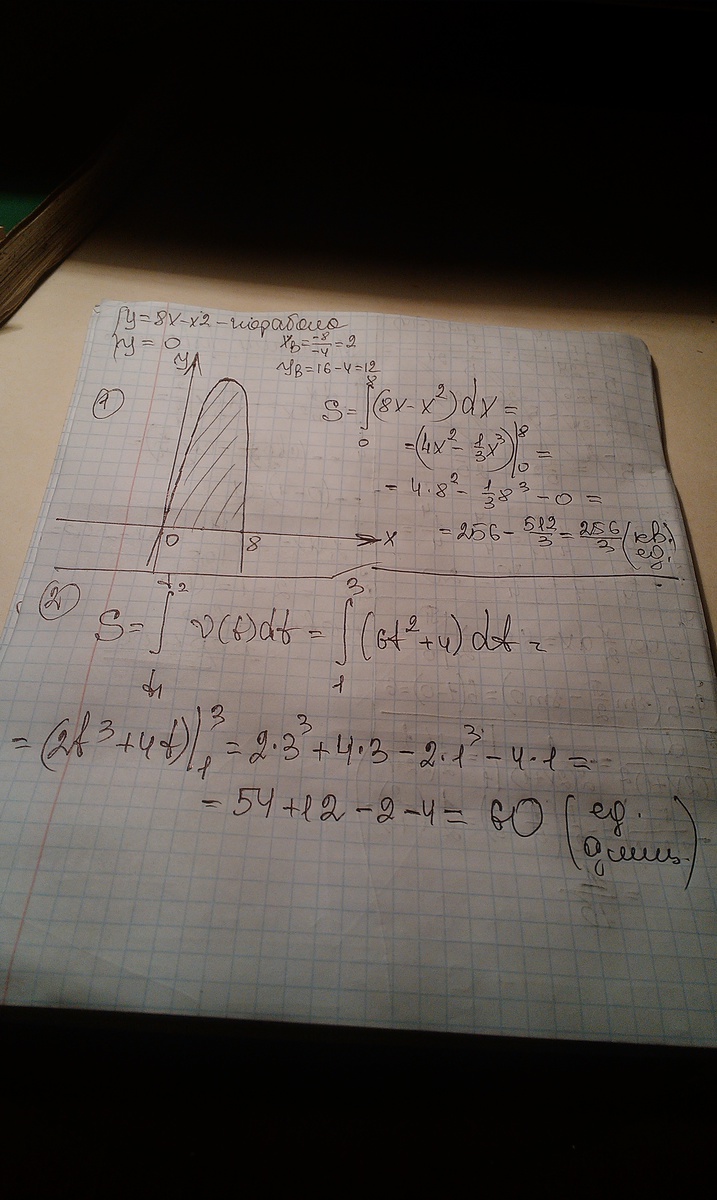 {y=8x-x2 - парабола
{y=0
x_B = -8/-4 = 2
y_B = 16-4=12
y
1
S = ∫₀⁸ (8x-x²)dx =
= (4x² - 1/3x³)|₀⁸ =
= 4·8² - 1/3 8³ - 0 =
= 256 - 512/3 = 256/3 (кв. ед.)
0 8 x
2
S = ∫_{t₁}^{t₂} v(t)dt = ∫₁³ (6t²+4)dt =
= (2t³+4t)|₁³ = 2·3³+4·3-2·1³-4·1=
= 54+12-2-4= 60 (ед. длины)